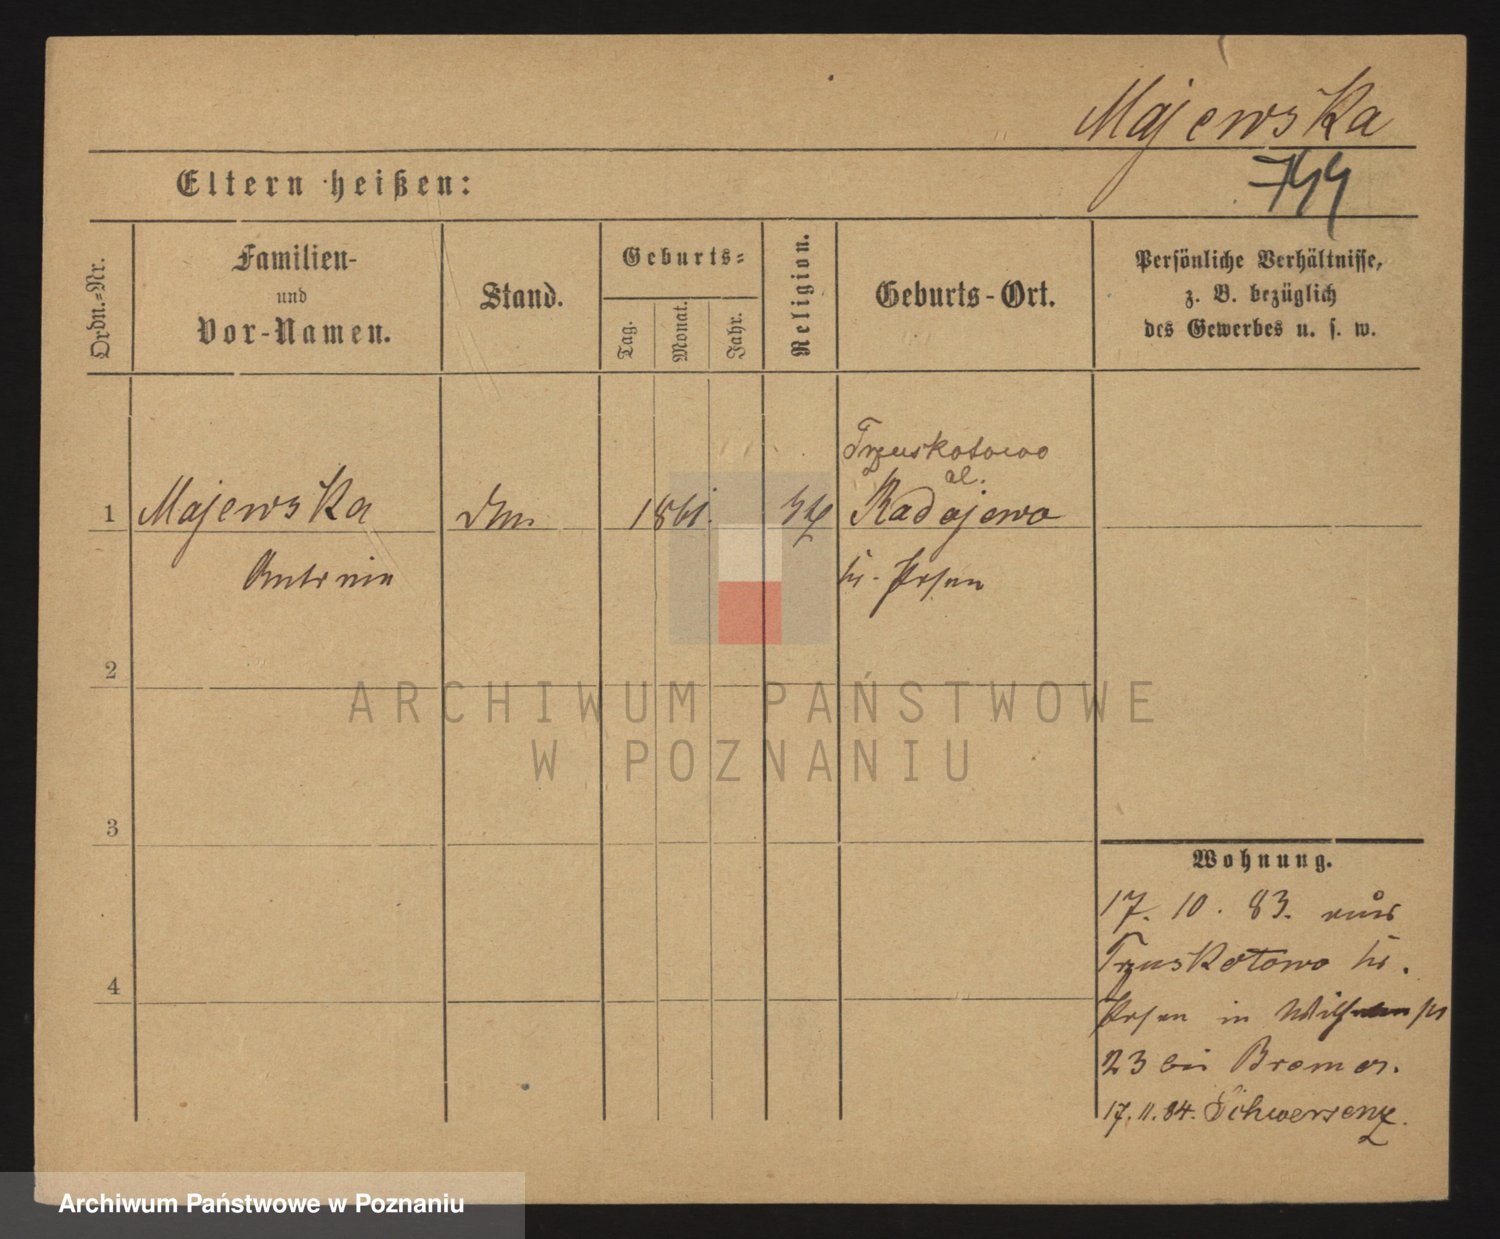 Majewska
744
Eltern heißen:
Ordn.=Nr.
Familien-
und
Vor-Namen.
Stand.
Geburts=
Tag.
Monat.
Jahr.
Religion.
Geburts-Ort.
Persönliche Verhältnisse,
z. B. bezüglich
des Gewerbes u. s. w.
Trzuskotowo
al.
1 Majewska 1861. Radojewo
Antonin Kr. Posen
2
ARCHIWUM PAŃSTWOWE
W POZNANIU
3
Wohnung.
17. 10. 83. aus
Trzuskotowo Kr.
4
Posen in
23 bei Bremer.
17.11.84. Schwersenz.
Archiwum Państwowe w Poznaniu